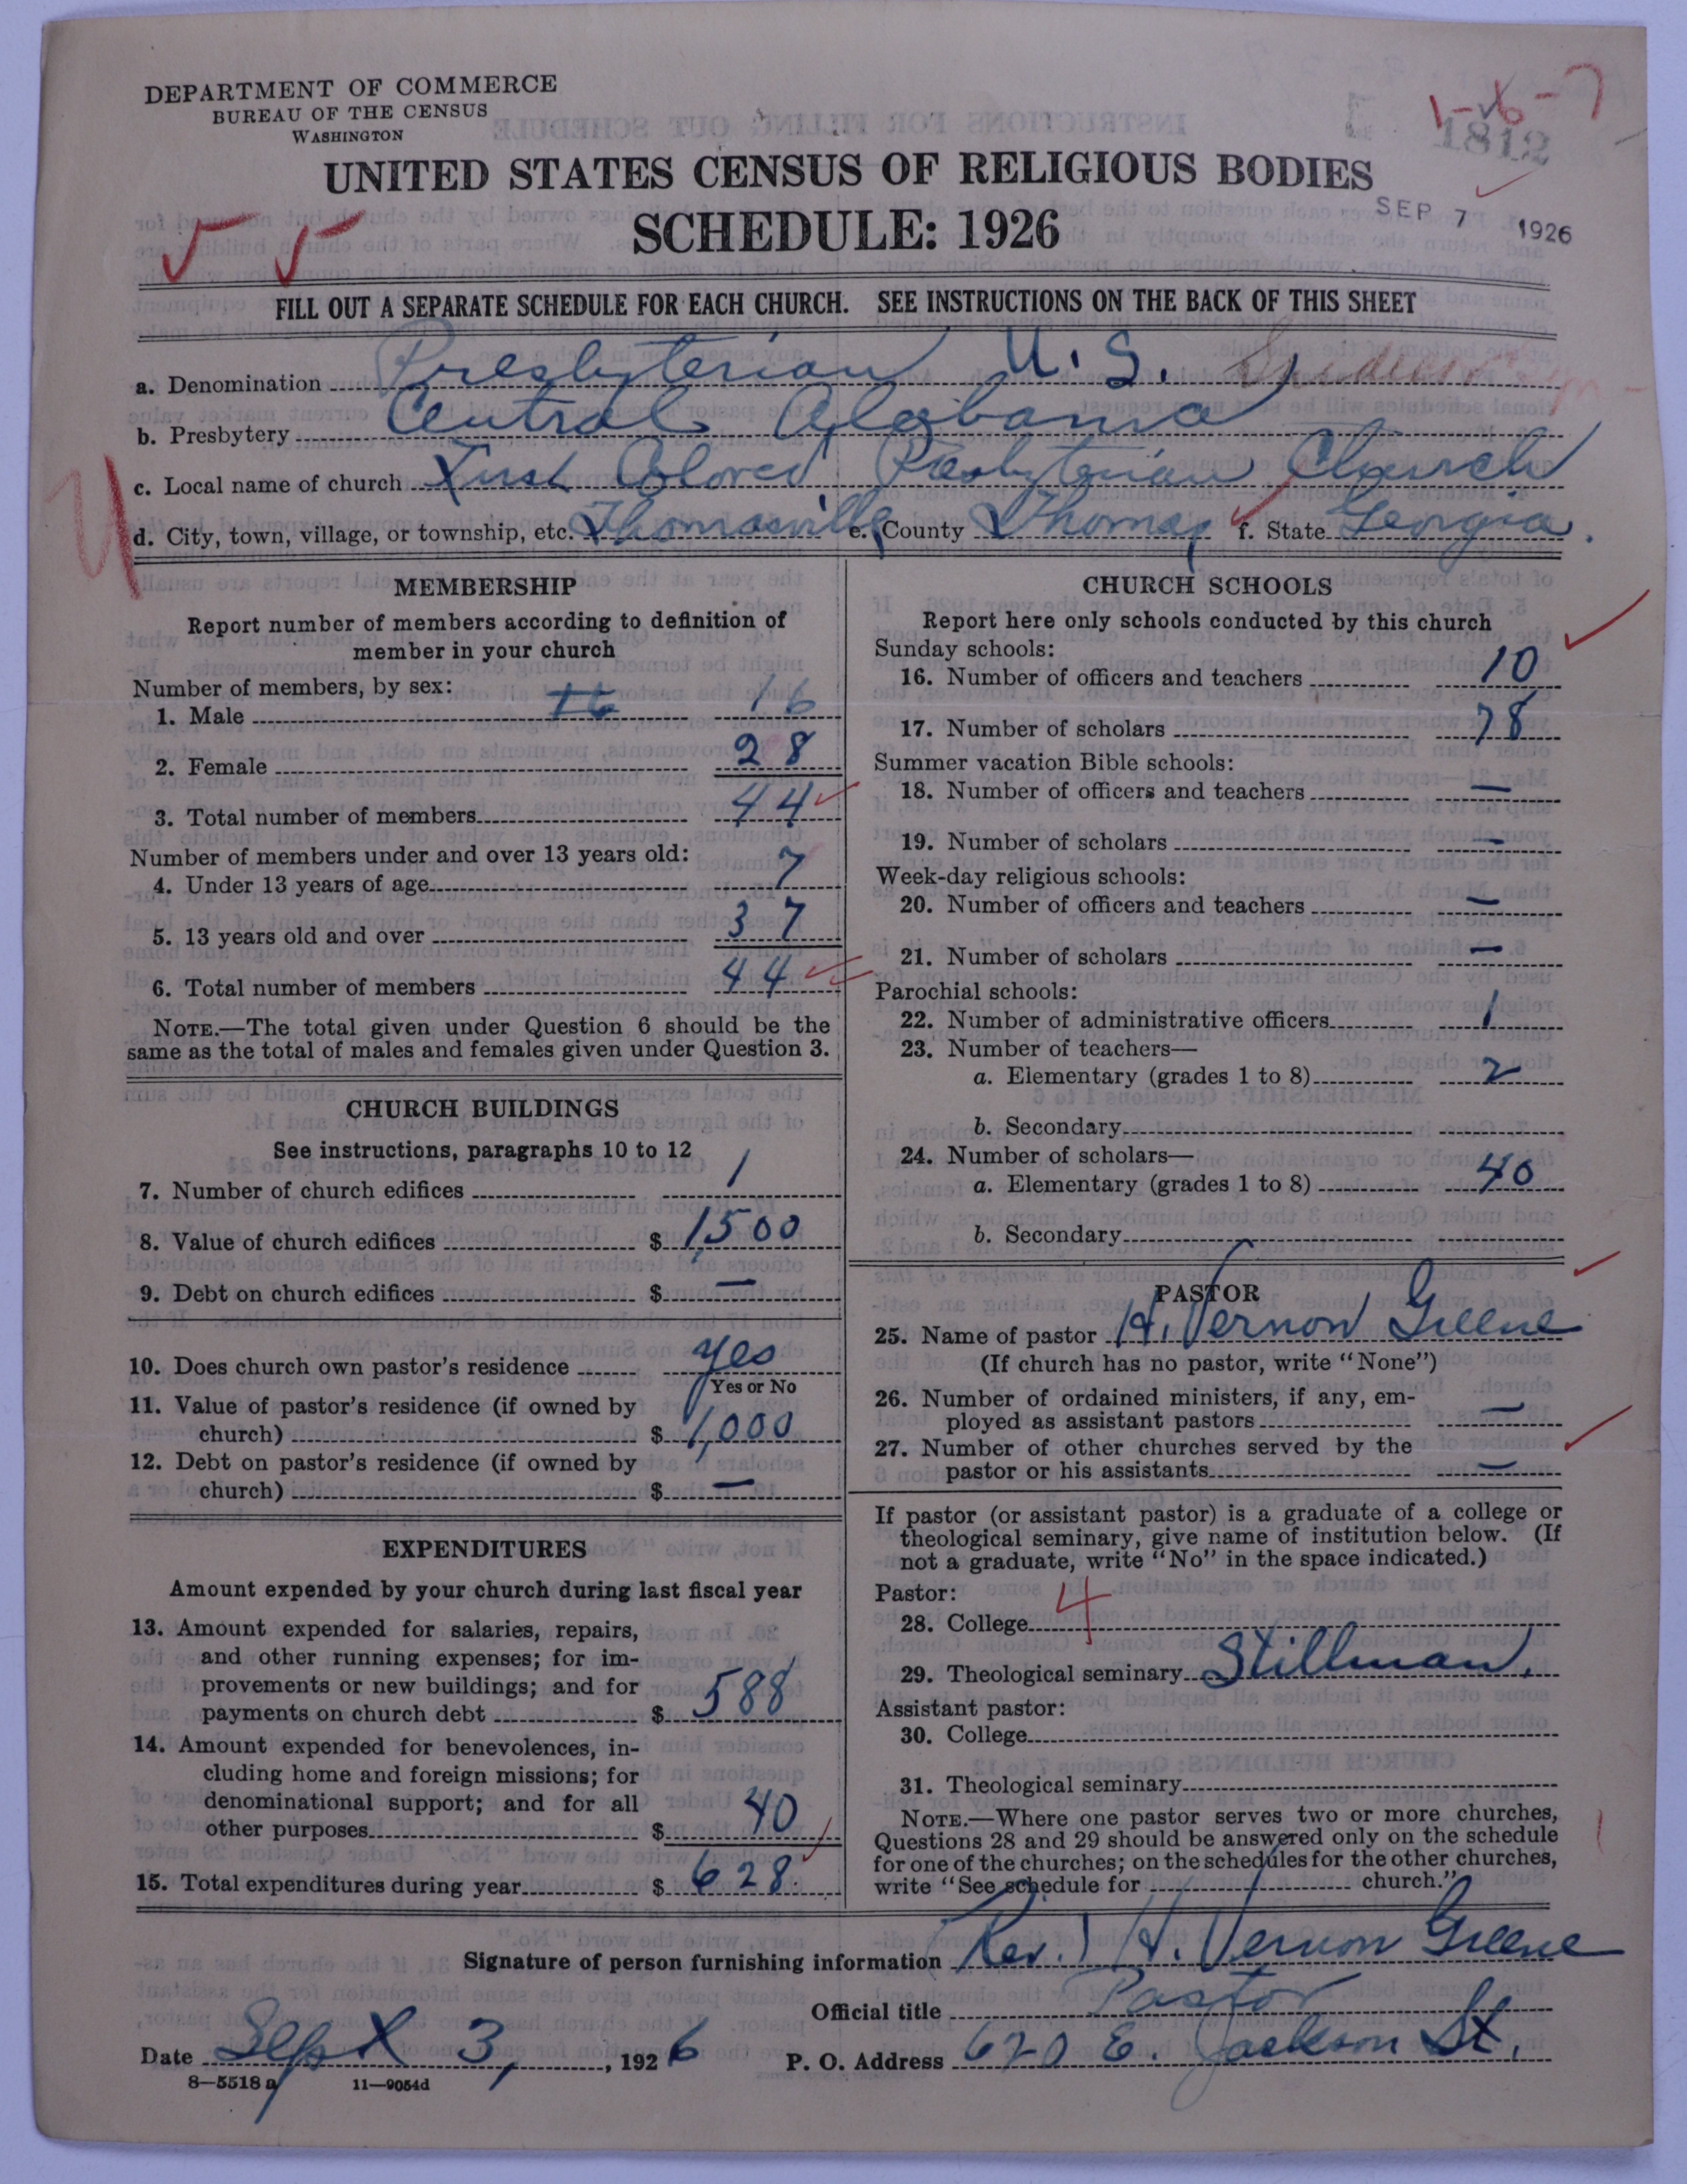 DEPARTMENT OF COMMERCE
BUREAU OF THE CENSUS
WASHINGTON
1-6-7
1812
UNITED STATES CENSUS OF RELIGIOUS BODIES
SCHEDULE: 1926
SEP 7 1926
FILL OUT A SEPARATE SCHEDULE FOR EACH CHURCH. SEE INSTRUCTIONS ON THE BACK OF THIS SHEET
a. Denomination Presbyterian U.S.
b. Presbytery Central Alabama
c. Local name of church First Colored Presbyterian Church
d. City, town, village, or township, etc. Thomasville e. County Thomas f. State Georgia.
MEMBERSHIP
Report number of members according to definition of
member in your church
Number of members, by sex:
1. Male 16 16
2. Female 28
3. Total number of members 44
Number of members under and over 13 years old:
4. Under 13 years of age 7
5. 13 years old and over 37
6. Total number of members 44
NOTE.—The total given under Question 6 should be the
same as the total of males and females given under Question 3.
CHURCH BUILDINGS
See instructions, paragraphs 10 to 12
7. Number of church edifices 1
8. Value of church edifices $ 1,500
9. Debt on church edifices $ —
10. Does church own pastor's residence yes
Yes or No
11. Value of pastor's residence (if owned by
church) $ 1,000
12. Debt on pastor's residence (if owned by
church) $ —
EXPENDITURES
Amount expended by your church during last fiscal year
13. Amount expended for salaries, repairs,
and other running expenses; for im-
provements or new buildings; and for
payments on church debt $ 588
14. Amount expended for benevolences, in-
cluding home and foreign missions; for
denominational support; and for all
other purposes $ 40
15. Total expenditures during year $ 628.
CHURCH SCHOOLS
Report here only schools conducted by this church
Sunday schools:
16. Number of officers and teachers 10
17. Number of scholars 78
Summer vacation Bible schools:
18. Number of officers and teachers —
19. Number of scholars —
Week-day religious schools:
20. Number of officers and teachers —
21. Number of scholars —
Parochial schools:
22. Number of administrative officers 1
23. Number of teachers—
a. Elementary (grades 1 to 8) 2
b. Secondary
24. Number of scholars—
a. Elementary (grades 1 to 8) 40
b. Secondary
PASTOR
25. Name of pastor H. Vernon Greene
(If church has no pastor, write "None")
26. Number of ordained ministers, if any, em-
ployed as assistant pastors —
27. Number of other churches served by the
pastor or his assistants —
If pastor (or assistant pastor) is a graduate of a college or
theological seminary, give name of institution below. (If
not a graduate, write "No" in the space indicated.)
Pastor: 4
28. College
29. Theological seminary Stillman.
Assistant pastor:
30. College
31. Theological seminary
NOTE.—Where one pastor serves two or more churches,
Questions 28 and 29 should be answered only on the schedule
for one of the churches; on the schedules for the other churches,
write "See schedule for church."
Signature of person furnishing information Rev. H. Vernon Greene
Official title Pastor
Date Sept 3, 1926 P. O. Address 620 E. Jackson St.
8—5518 a 11—9054d